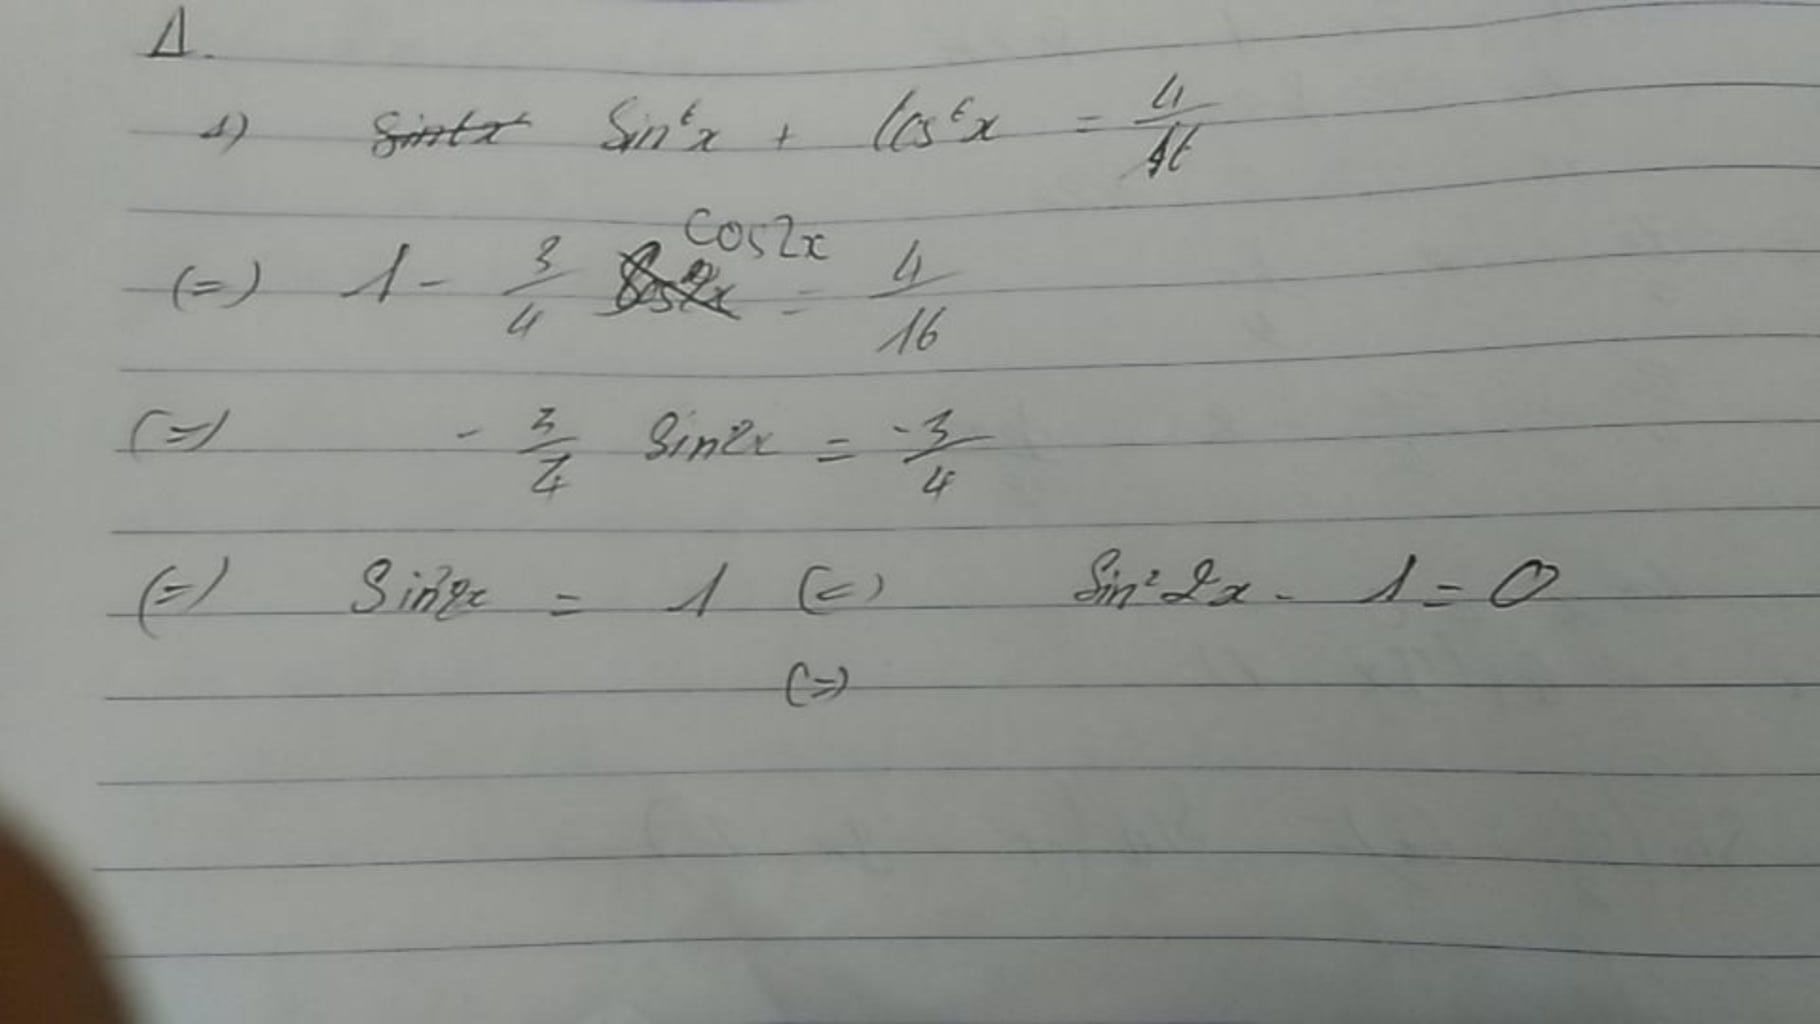 1.
1) sin⁶x + cos⁶x = 4/16
(=) 1 - 3/4 cos2x = 4/16
(=) - 3/4 sin2x = -3/4
(=) sin²2x = 1 (=) sin²2x - 1 = 0
(=)